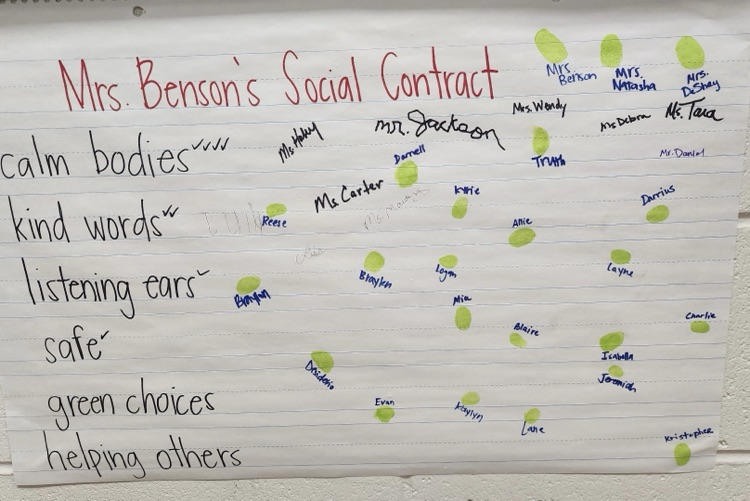 Mrs. Benson's Social Contract
Mrs. Benson
Mrs. Natasha
Mrs. DeShay
Mrs. Wendy
Ms. Debra
Ms. Tara
mr. Jackson
calm bodies
Darnell
Truth
Mr. Daniel
Ms Carter
Kyrie
Darrius
kind words
Reese
Allie
listening ears
Braylen
Logan
Layne
Mia
Blaire
Charlie
safe
Isabella
Desiderio
Jeremiah
green choices
Evan
Kaylyn
Lane
helping others
Kristopher